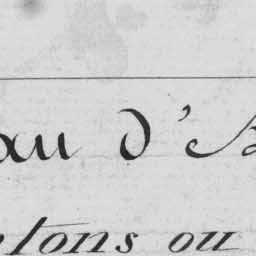 au d'B
ntons ou